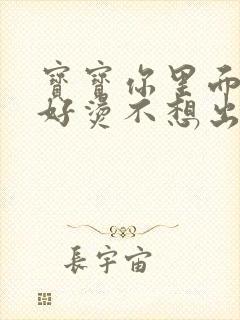 寶寶你里面
好燙不想出
長宇宙